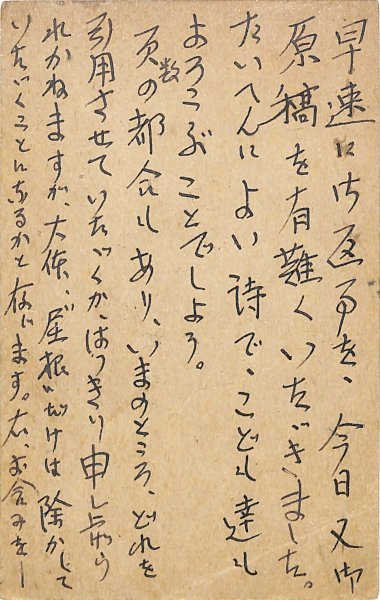 早速に御返事を、今日又御
原稿を有難くいただきました。
たいへんによい詩で、こども達も
よろこぶことでしよう。
頁数の都合もあり、いまのところ、どれを
引用させていただくか、はつきり申し上げら
れかねますが、大体、"屋根"だけは除かして
いただくことになるかと存じます。右、お含みを